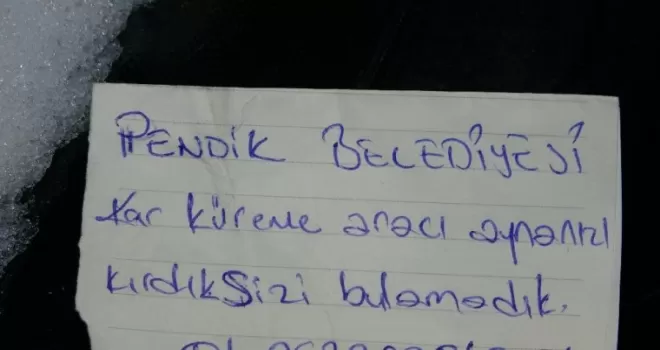 PENDİK BELEDİYESİ
Kar küreme aracı aynanızı
kırdık sizi bulamadık.